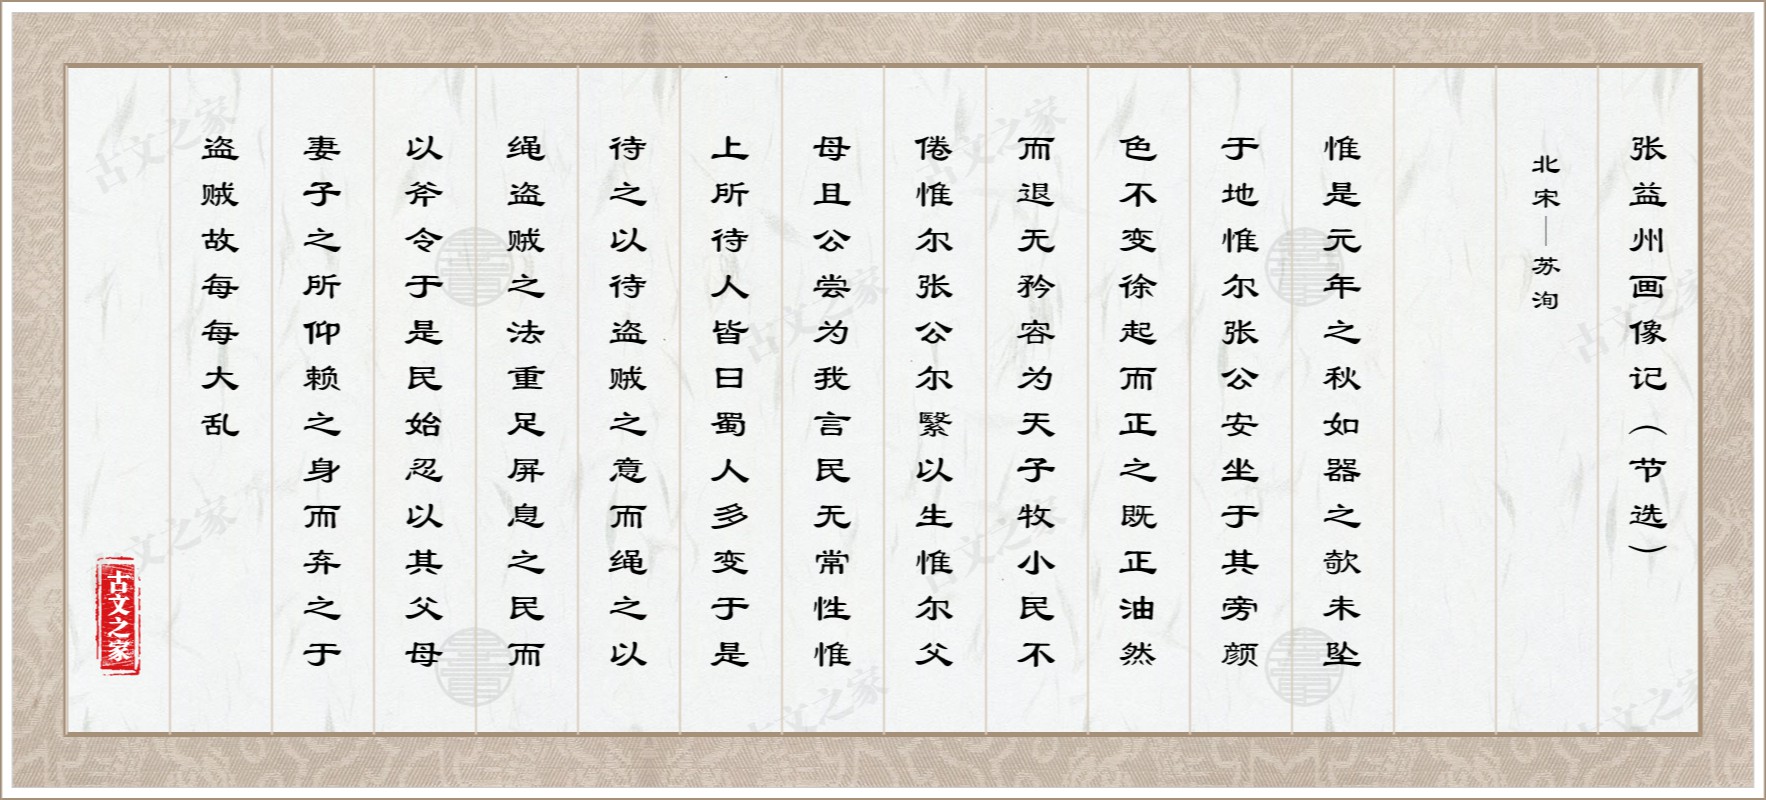 张益州画像记（节选）
北宋—苏洵
惟是元年之秋如器之欹未坠
于地惟尔张公安坐于其旁颜
色不变徐起而正之既正油然
而退无矜容为天子牧小民不
倦惟尔张公尔繄以生惟尔父
母且公尝为我言民无常性惟
上所待人皆曰蜀人多变于是
待之以待盗贼之意而绳之以
绳盗贼之法重足屏息之民而
以斧令于是民始忍以其父母
妻子之所仰赖之身而弃之于
盗贼故每每大乱
古文之家
古文之家
古文之家
古文之家
古文之家
古文之家
古文之家
古文之家
古文之家